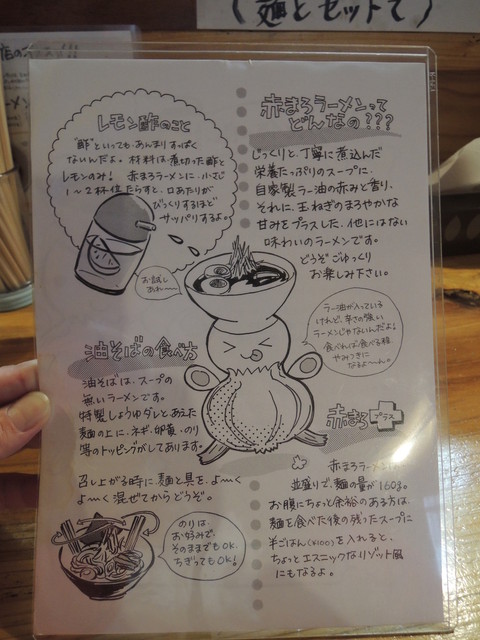 (麺とセットで)
レモン酢のこと
"酢"といっても、あんまりすっぱく
ないんだよ。材料は煮切った酢と
レモンのみ! 赤まろラーメンに、小さじ
1〜2杯位たらすと、口あたりが
びっくりするほど
サッパリするよ。
お試し
あれ〜
赤まろラーメンって
どんなの???
じっくりと、丁寧に煮込んだ
栄養たっぷりのスープに、
自家製ラー油の赤みと香り、
それに、玉ねぎのまろやかな
甘みをプラスした、他にはない
味わいのラーメンです。
どうぞごゆっくり
お楽しみ下さい。
ラー油が入っている
けれど、辛さの強い
ラーメンじゃないんだよ!
食べれば食べる程、
やみつきに
なるよ〜ん。
油そばの食べ方
油そばは、スープの
無いラーメンです。
特製しょうゆダレとあえた
麺の上に、ネギ、卵黄、のり
等のトッピングがしてあります。
召し上がる時に、麺と具を、よ〜く
よ〜く混ぜてからどうぞ。
のりは
お好みで、
そのままでもOK、
ちぎってもOK!
赤まろプラス
赤まろラーメンは
並盛りで、麺の量が160g。
お腹にちょっと余裕のある方は、
麺を食べた後の残ったスープに
半ごはん(¥100)を入れると、
ちょっとエスニックなリゾット風
にもなるよ。